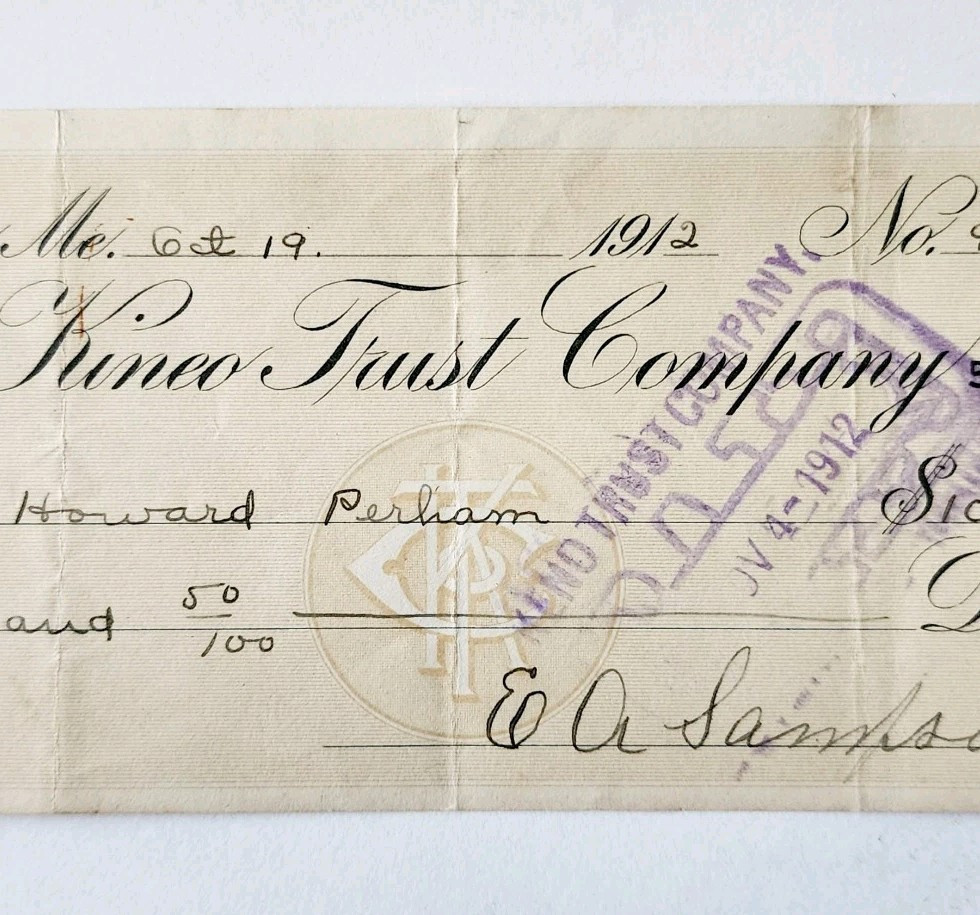 Me. Oct 19. 1912 No.
Kineo Trust Company
Howard Perham $10
and 50/100
E A Samps
TRUST COMPANY.
V 4-1912